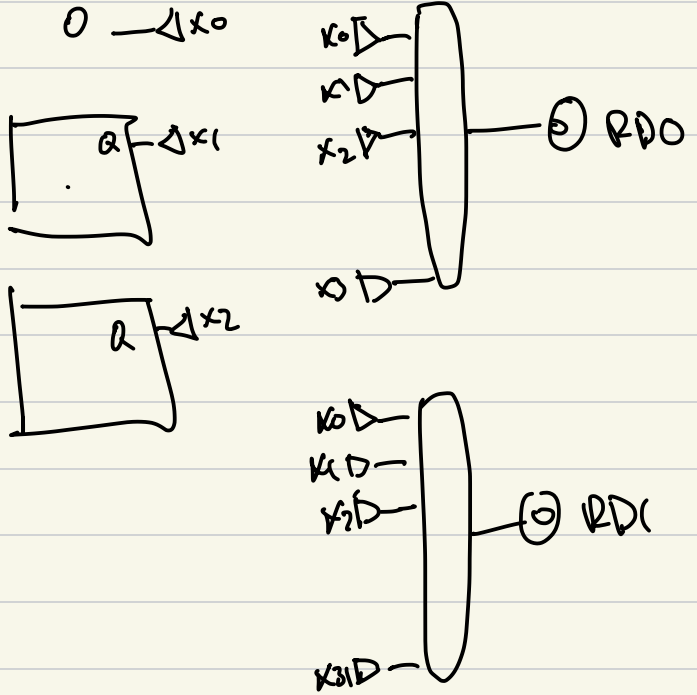 0 x0
Q x1
Q x2
x0
x1
x2
x0
RD0
x0
x1
x2
x31
RD1